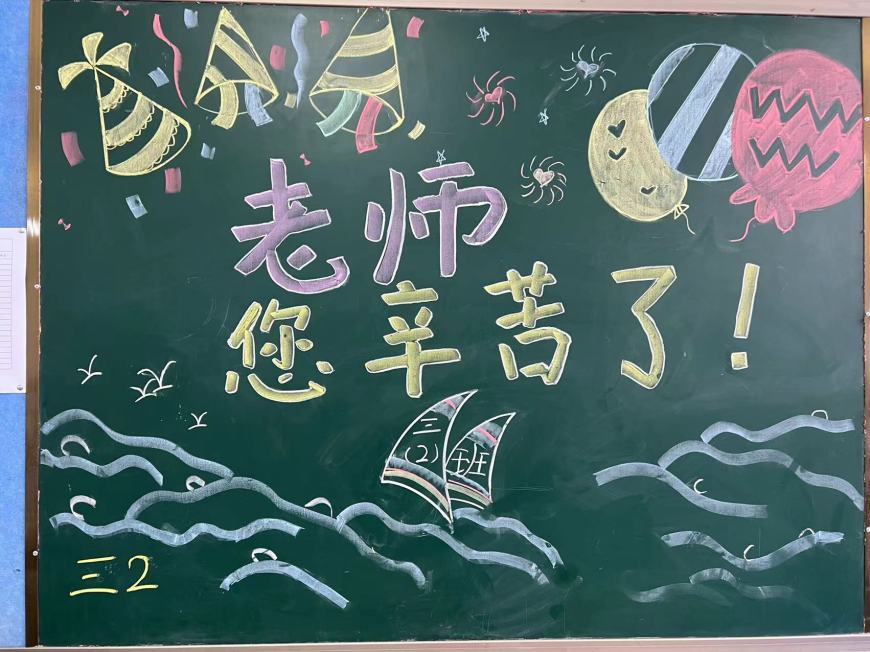 老师
您辛苦了！
三
（2）班
三2